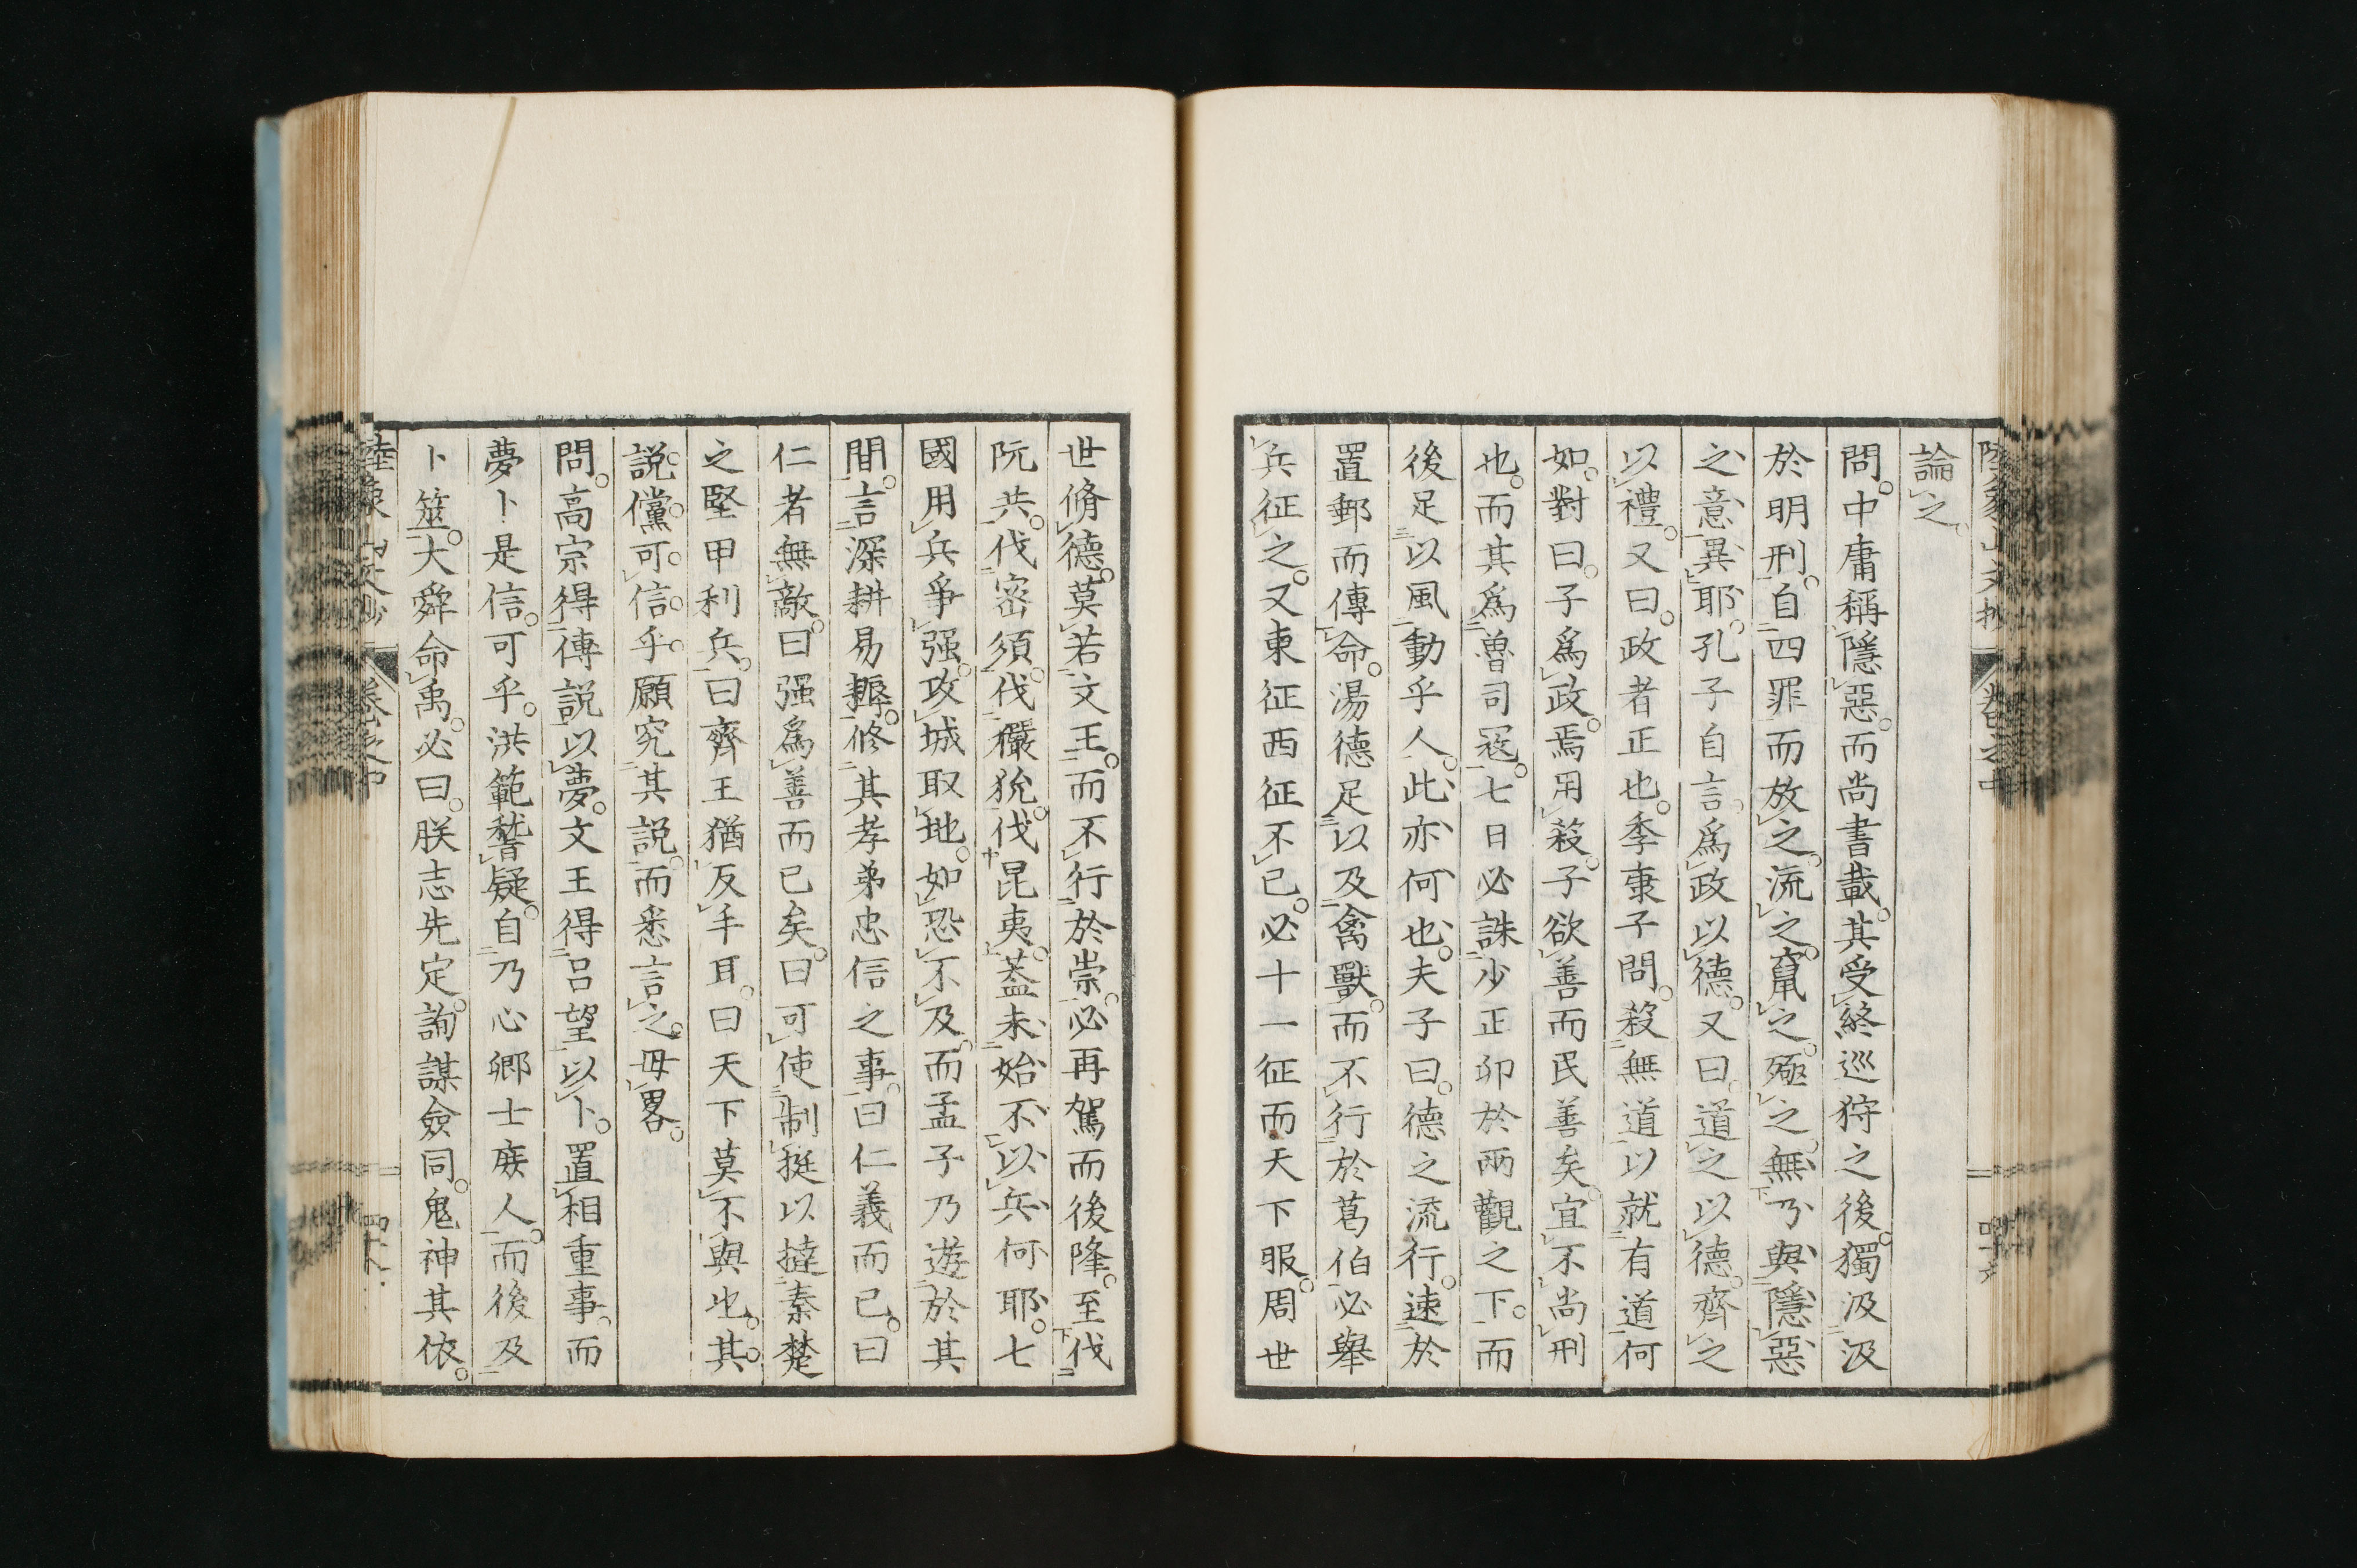 論之
問。中庸稱隱惡。而尚書載。其受終巡狩之後。獨汲汲
於明刑。自四罪而放之。流之。竄之。殛之。無乃與隱惡
之意異耶。孔子自言。爲政以德。又曰。道之以德。齊之
以禮。又曰。政者正也。季康子問。殺無道以就有道何
如。對曰。子爲政。焉用殺。子欲善而民善矣。宜不尚刑
也。而其爲魯司寇。七日必誅少正卯於兩觀之下。而
後足以風動乎人。此亦何也。夫子曰。德之流行。速於
置郵而傳命。湯德足以及禽獸。而不行於葛伯必舉
兵征之。又東征西征不已。必十一征而天下服。周世
世脩德。莫若文王。而不行於崇。必再駕而後降。至伐
阮共。伐密須。伐玁狁。伐昆夷。蓋未始不以兵何耶。七
國用兵爭强。攻城取地。如恐不及。而孟子乃遊於其
間。言深耕易耨。修其孝弟忠信之事。曰仁義而已。曰
仁者無敵。曰强爲善而已矣。曰可使制挺以撻秦楚
之堅甲利兵。曰齊王猶反手耳。曰天下莫不與也。其
説。儻可信乎。願究其説。而悉言之。毋畧。
問。高宗得傳説以夢。文王得呂望以卜。置相重事。而
夢卜是信。可乎。洪範稽疑。自乃心卿士庶人。而後及
卜筮。大舜命禹。必曰。朕志先定。詢謀僉同。鬼神其依。